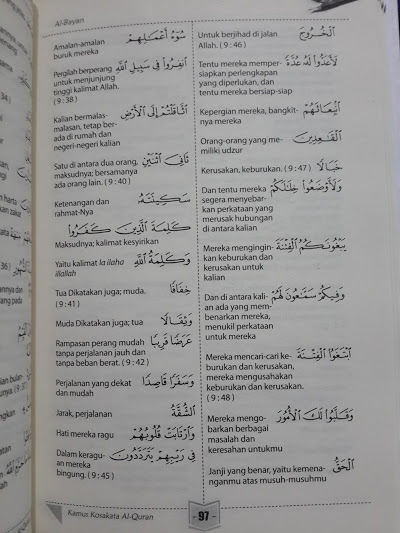 Al-Bayan
Amalan-amalan
buruk mereka
سُوٓءُ أَعْمَٰلِهِمْ
Pergilah berperang
untuk menjunjung
tinggi kalimat Allah.
(9 : 38)
ٱنفِرُوا۟ فِى سَبِيلِ ٱللَّهِ
Kalian bermalas-
malasan, tetap ber-
ada di rumah dan
negeri-negeri kalian
ٱثَّاقَلْتُمْ إِلَى ٱلْأَرْضِ
Satu di antara dua orang,
maksudnya; bersamanya
ada orang lain. (9 : 40)
ثَانِىَ ٱثْنَيْنِ
Ketenangan dan
rahmat-Nya
سَكِينَتَهُۥ
كَلِمَةَ ٱلَّذِينَ كَفَرُوا۟
Maksudnya; kalimat kesyirikan
Yaitu kalimat la ilaha
illallah
وَكَلِمَةُ ٱللَّهِ
Tua Dikatakan juga; muda.
(9 : 41)
خِفَافًا
Muda Dikatakan juga; tua
وَثِقَالًا
Rampasan perang mudah
tanpa perjalanan jauh dan
tanpa beban berat. (9 : 42)
عَرَضًا قَرِيبًا
Perjalanan yang dekat
dan mudah
وَسَفَرًا قَاصِدًا
Jarak, perjalanan
ٱلشُّقَّةُ
Hati mereka ragu
وَٱرْتَابَتْ قُلُوبُهُمْ
Dalam keragu-
an mereka
bingung. (9 : 45)
فِى رَيْبِهِمْ يَتَرَدَّدُونَ
Untuk berjihad di jalan
Allah. (9 : 46)
ٱلْخُرُوجَ
Tentu mereka memper-
siapkan perlengkapan
yang diperlukan, dan
tentu mereka bersiap-siap
لَأَعَدُّوا۟ لَهُۥ عُدَّةً
Kepergian mereka, bangkit-
nya mereka
ٱنۢبِعَاثَهُمْ
Orang-orang yang me-
miliki udzur
ٱلْقَٰعِدِينَ
Kerusakan, keburukan. (9 : 47)
خَبَالًا
Dan tentu mereka
segera menyebar-
kan perkataan yang
merusak hubungan
di antara kalian
وَلَأَوْضَعُوا۟ خِلَٰلَكُمْ
Mereka mengingin-
kan keburukan dan
kerusakan untuk
kalian
يَبْغُونَكُمُ ٱلْفِتْنَةَ
Dan di antara kali-
an ada yang mem-
benarkan mereka,
menukil perkataan
untuk mereka
وَفِيكُمْ سَمَّٰعُونَ لَهُمْ
Mereka mencari-cari ke-
burukan dan kerusakan,
mereka mengusahakan
keburukan dan kerusakan.
(9 : 48)
ٱبْتَغَوُا۟ ٱلْفِتْنَةَ
Mereka mengo-
barkan berbagai
masalah dan
keresahan untukmu
وَقَلَّبُوا۟ لَكَ ٱلْأُمُورَ
Janji yang benar, yaitu kemena-
nganmu atas musuh-musuhmu
ٱلْحَقُّ
Kamus Kosakata Al-Quran
- 97 -